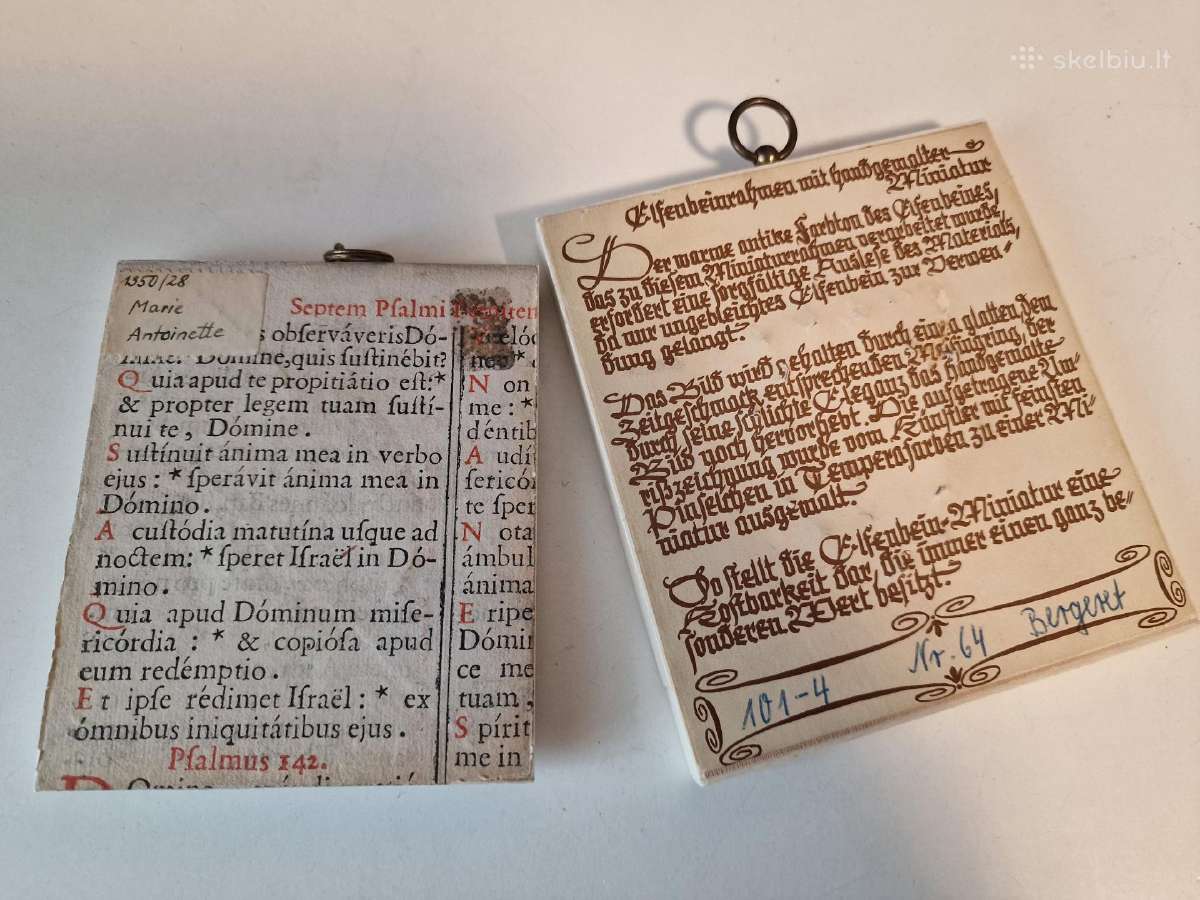 skelbiu.lt
1550/28
Marie
Antoinette
Septem Pſalmi
s obſerváveris Dó-
Dómine, quis ſuſtinébit?
Quia apud te propitiátio eſt: *
& propter legem tuam ſuſtí-
nui te, Dómine.
Suſtínuit ánima mea in verbo
ejus: * ſperávit ánima mea in
Dómino.
A cuſtódia matutína uſque ad
noctem: * ſperet Iſraël in Dó-
mino.
Quia apud Dóminum miſe-
ricórdia: * & copióſa apud
eum redémptio.
Et ipſe rédimet Iſraël: * ex
ómnibus iniquitátibus ejus.
Pſalmus 142.
Non
me: *
déntib
Audí
ſericór
te ſper
Nota
ámbul
ánima
Eripe
Dómin
ce me
tuam,
Spírit
me in
Elfenbeinrahmen mit handgemalter
Miniatur
Der warme antike Farbton des Elfenbeines,
das zu dieſem Miniaturrahmen verarbeitet wurde
erfordert eine ſorgfältige Ausleſe des Materials,
da nur ungebleichtes Elfenbein zur Verwen-
dung gelangt.
Das Bild wird gehalten durch einen glatten dem
Zeitgeſchmack entſprechenden Meſſingring, der
durch ſeine ſchlichte Eleganz das handgemalte
Bild noch hervorhebt. Die aufgetragene Um-
rißzeichnung wurde vom Künſtler mit feinſten
Pinſelchen in Temperafarben zu einer Mi-
niatur ausgemalt.
So ſtellt die Elfenbein-Miniatur eine
Koſtbarkeit dar, die immer einen ganz be-
ſonderen Wert beſitzt.
101-4 Nr. 64 Bergeret